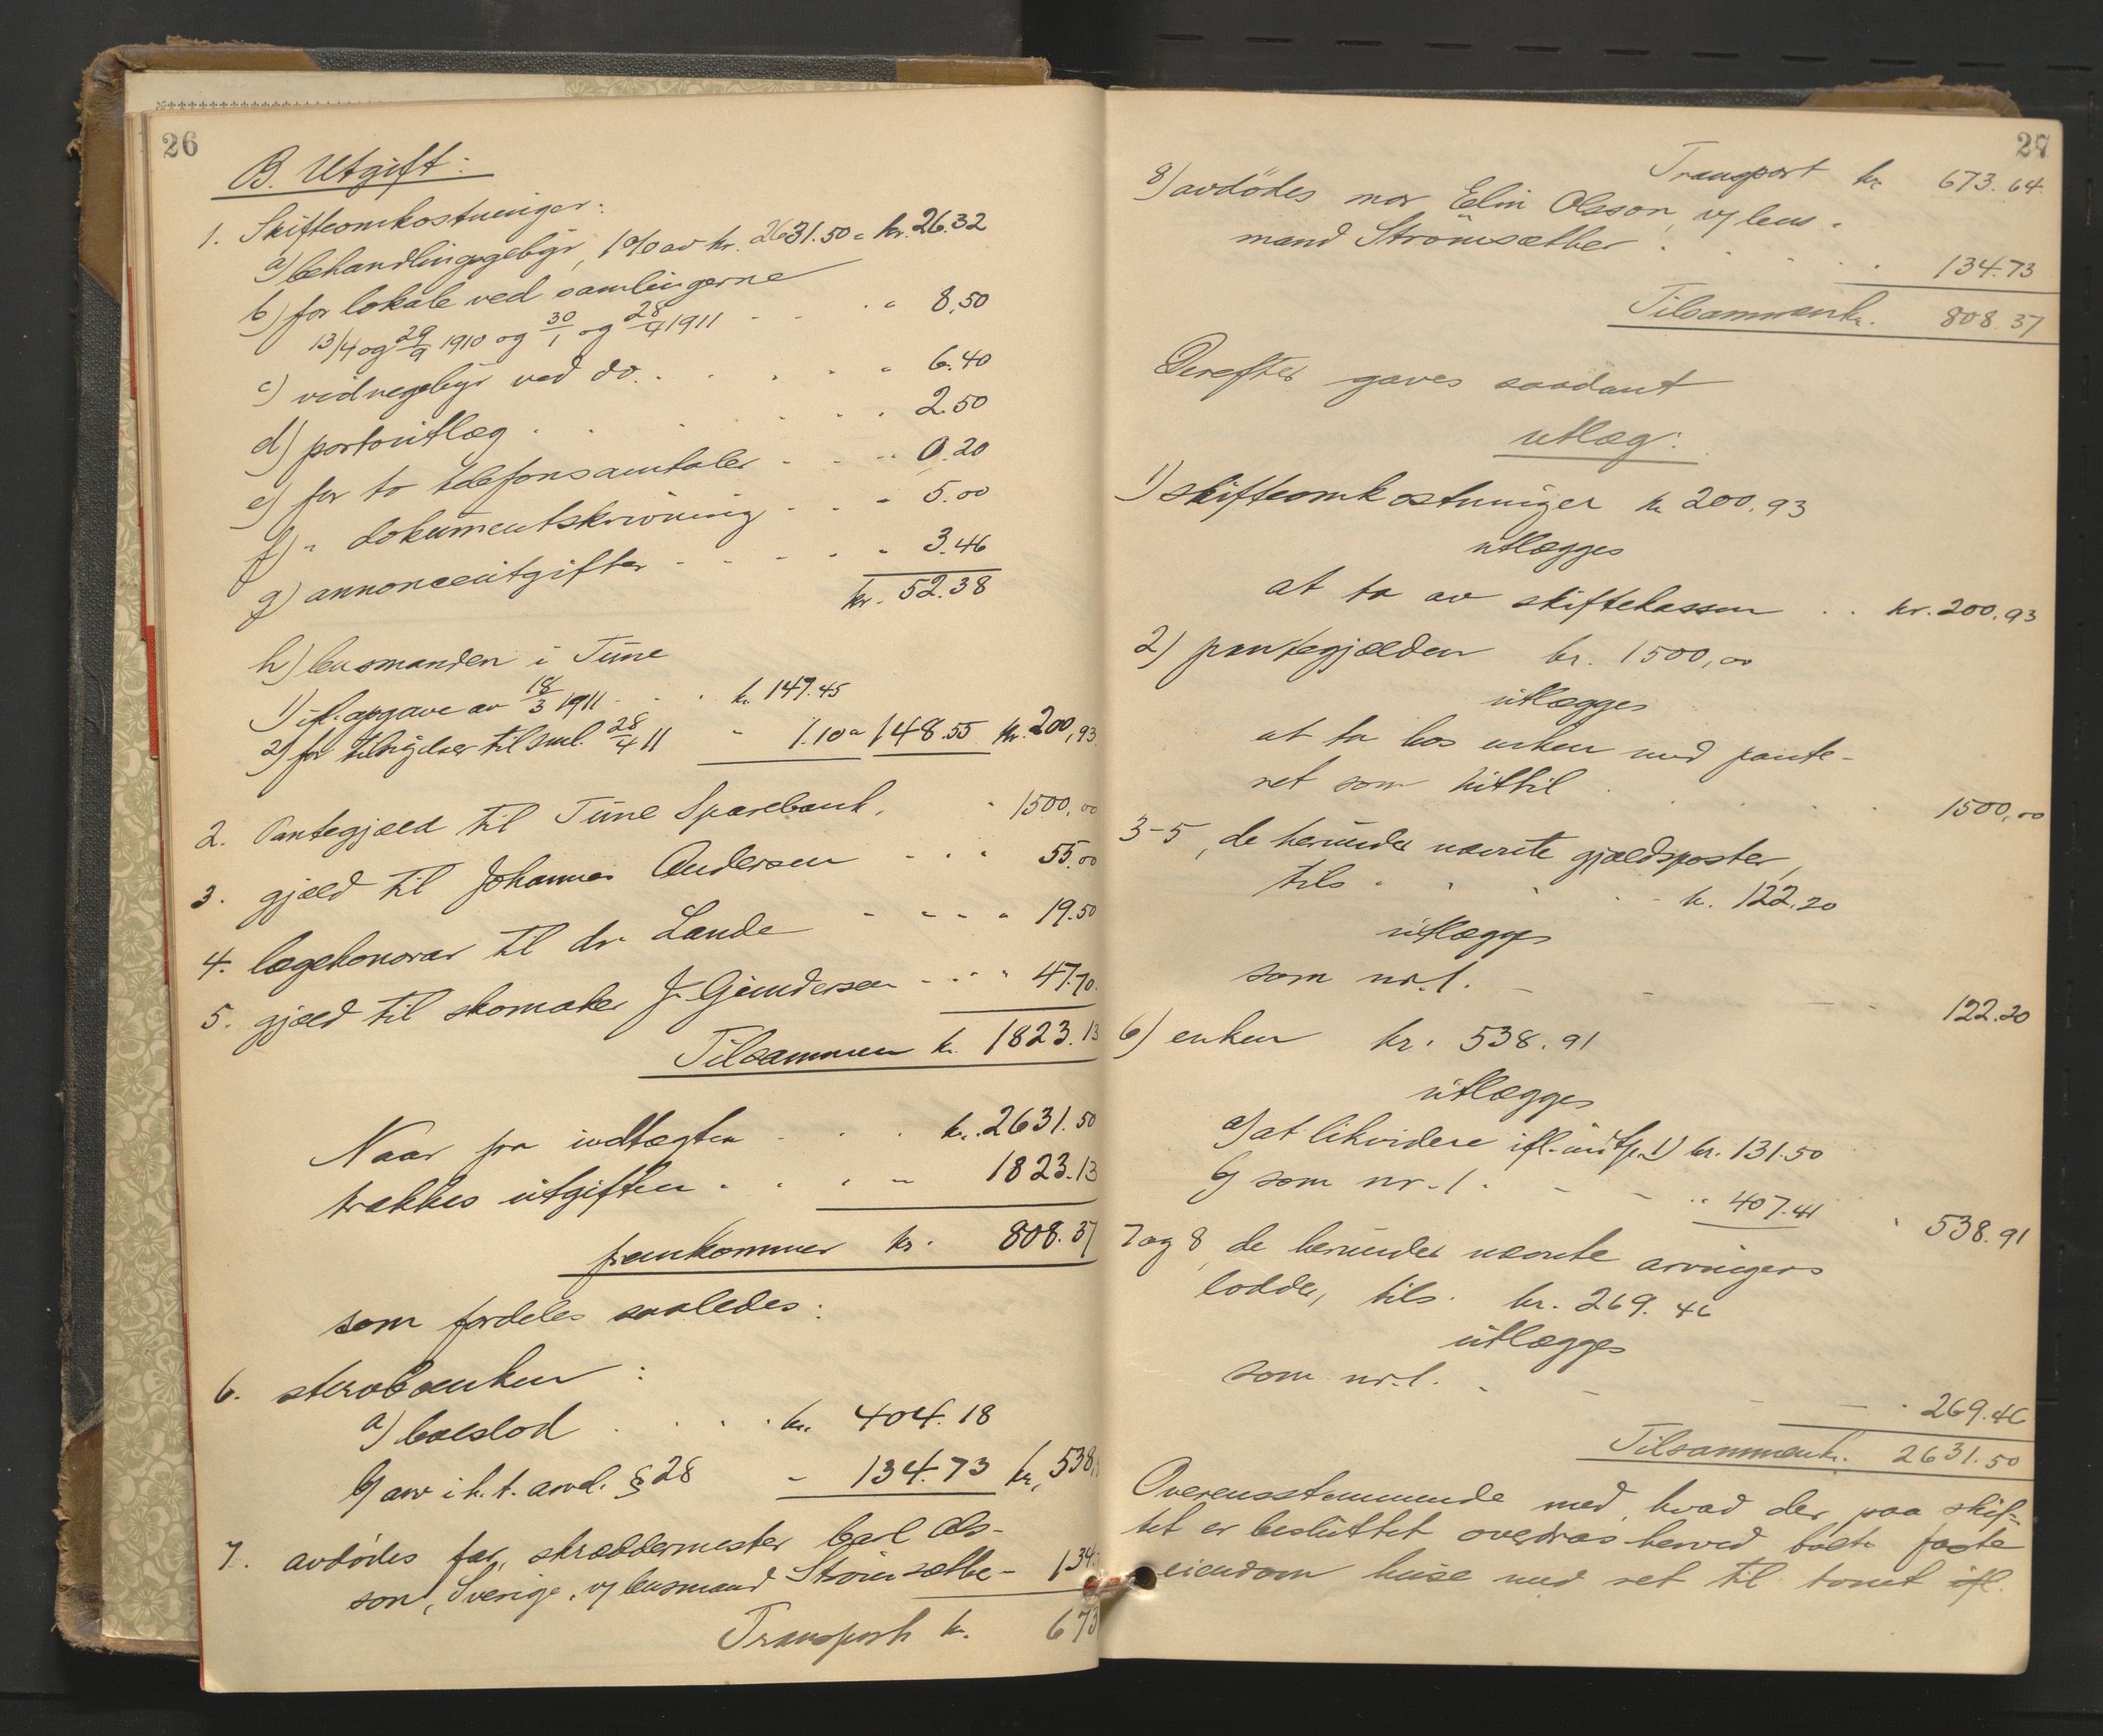 26
B. Utgift:
1. Skifteomkostninger:
a) behandlingsgebyr, 1% av kr. 2631.50 = kr. 26.32
b) for lokale ved samlingerne
13/4 og 29/9 1910 og 30/1 og 28/4 1911 - - . " 8,50
c) vidnegebyr ved do. . . . . " 6.40
d) portoutlæg . . . . . 2.50
e) for to telefonsamtaler - - - " 0.20
f) " dokumentskrivning - - - " 5.00
g) annonceutgifter - - - - " 3.46
kr. 52.38
h) lensmanden i Tune
1) ifl. opgave av 18/3 1911 - . . kr. 147.45
2) for tilsigelser til saml. 28/4 11 " 1.10 = 148.55 kr. 200,93
2. Pantegjæld til Tune Sparebank. " 1500,00
3. gjæld til Johannes Andersen - - " 55.00
4. lægehonorar til dr. Lande - - - " 19.50
5. gjæld til skomaker J. Gundersen - - " 47.70
Tilsammen kr. 1823.13
Naar fra indtægten . . . kr. 2631.50
trækkes utgiften . . . " 1823.13
fremkommer kr. 808.37
som fordeles saaledes:
6. sterboenken :
a) boeslod . . . . kr. 404.18
b) arv i h. t. arvel. § 28 " 134.73 kr. 538,
7. avdødes far, skræddermester Carl Ols-
son, Sverige, v/ lensmand Strømsæther - 134.
Transport kr. 673
27
Transport kr. 673.64
8) avdødes mor Elin Olsson, v/ lens-
mand Strømsæther . . . . . 134.73
Tilsammen kr. 808.37
Derefter gaves saadant
utlæg:
1) skifteomkostninger kr. 200.93
utlægges
at ta av skiftekassen . . kr. 200,93
2) pantegjælden kr. 1500,00
utlægges
at ta hos enken med pante-
ret som hittil . . . . . 1500,00
3-5, de herunder nævnte gjældsposter,
tils. . . . - kr. 122.20
utlægges
som nr. 1. - - - - 122.20
6) enken kr. 538.91
utlægges
a) at likvidere ifl. indtp. 1) kr. 131.50
b) som nr. 1. - - " 407.41 " 538.91
7 og 8, de herunder nævnte arvingers
lodder, tils. kr. 269.46
utlægges
som nr. 1. - - - - " 269.46
Tilsammen kr. 2631.50
Overensstemmende med, hvad der paa skif-
tet er besluttet overdras herved boets faste
eiendom huse med ret til tomt ifl.